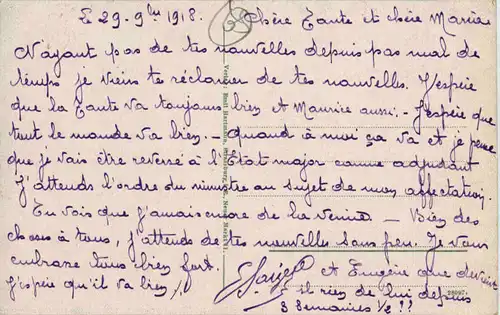 Le 29-9bre 1918. Chère Tante et chère Maria
N'ayant pas de tes nouvelles depuis pas mal de
temps je viens te réclamer de tes nouvelles. J'espère
que la Tante va toujours bien et Maurice aussi. - J'espère que
tout le monde va bien. - Quand à moi ça va et je pense
que je vais être reversé à l'État major comme adjudant
J'attends l'ordre du ministre au sujet de mon affectation.
Tu vois que j'amais encore de la veine. - Bien des
choses à tous, j'attends de tes nouvelles sans peu. Je vous
embrasse tous bien fort.
et Eugène que devient
il rien de lui depuis
3 semaines 1/2 !!
j'espère qu'il va bien